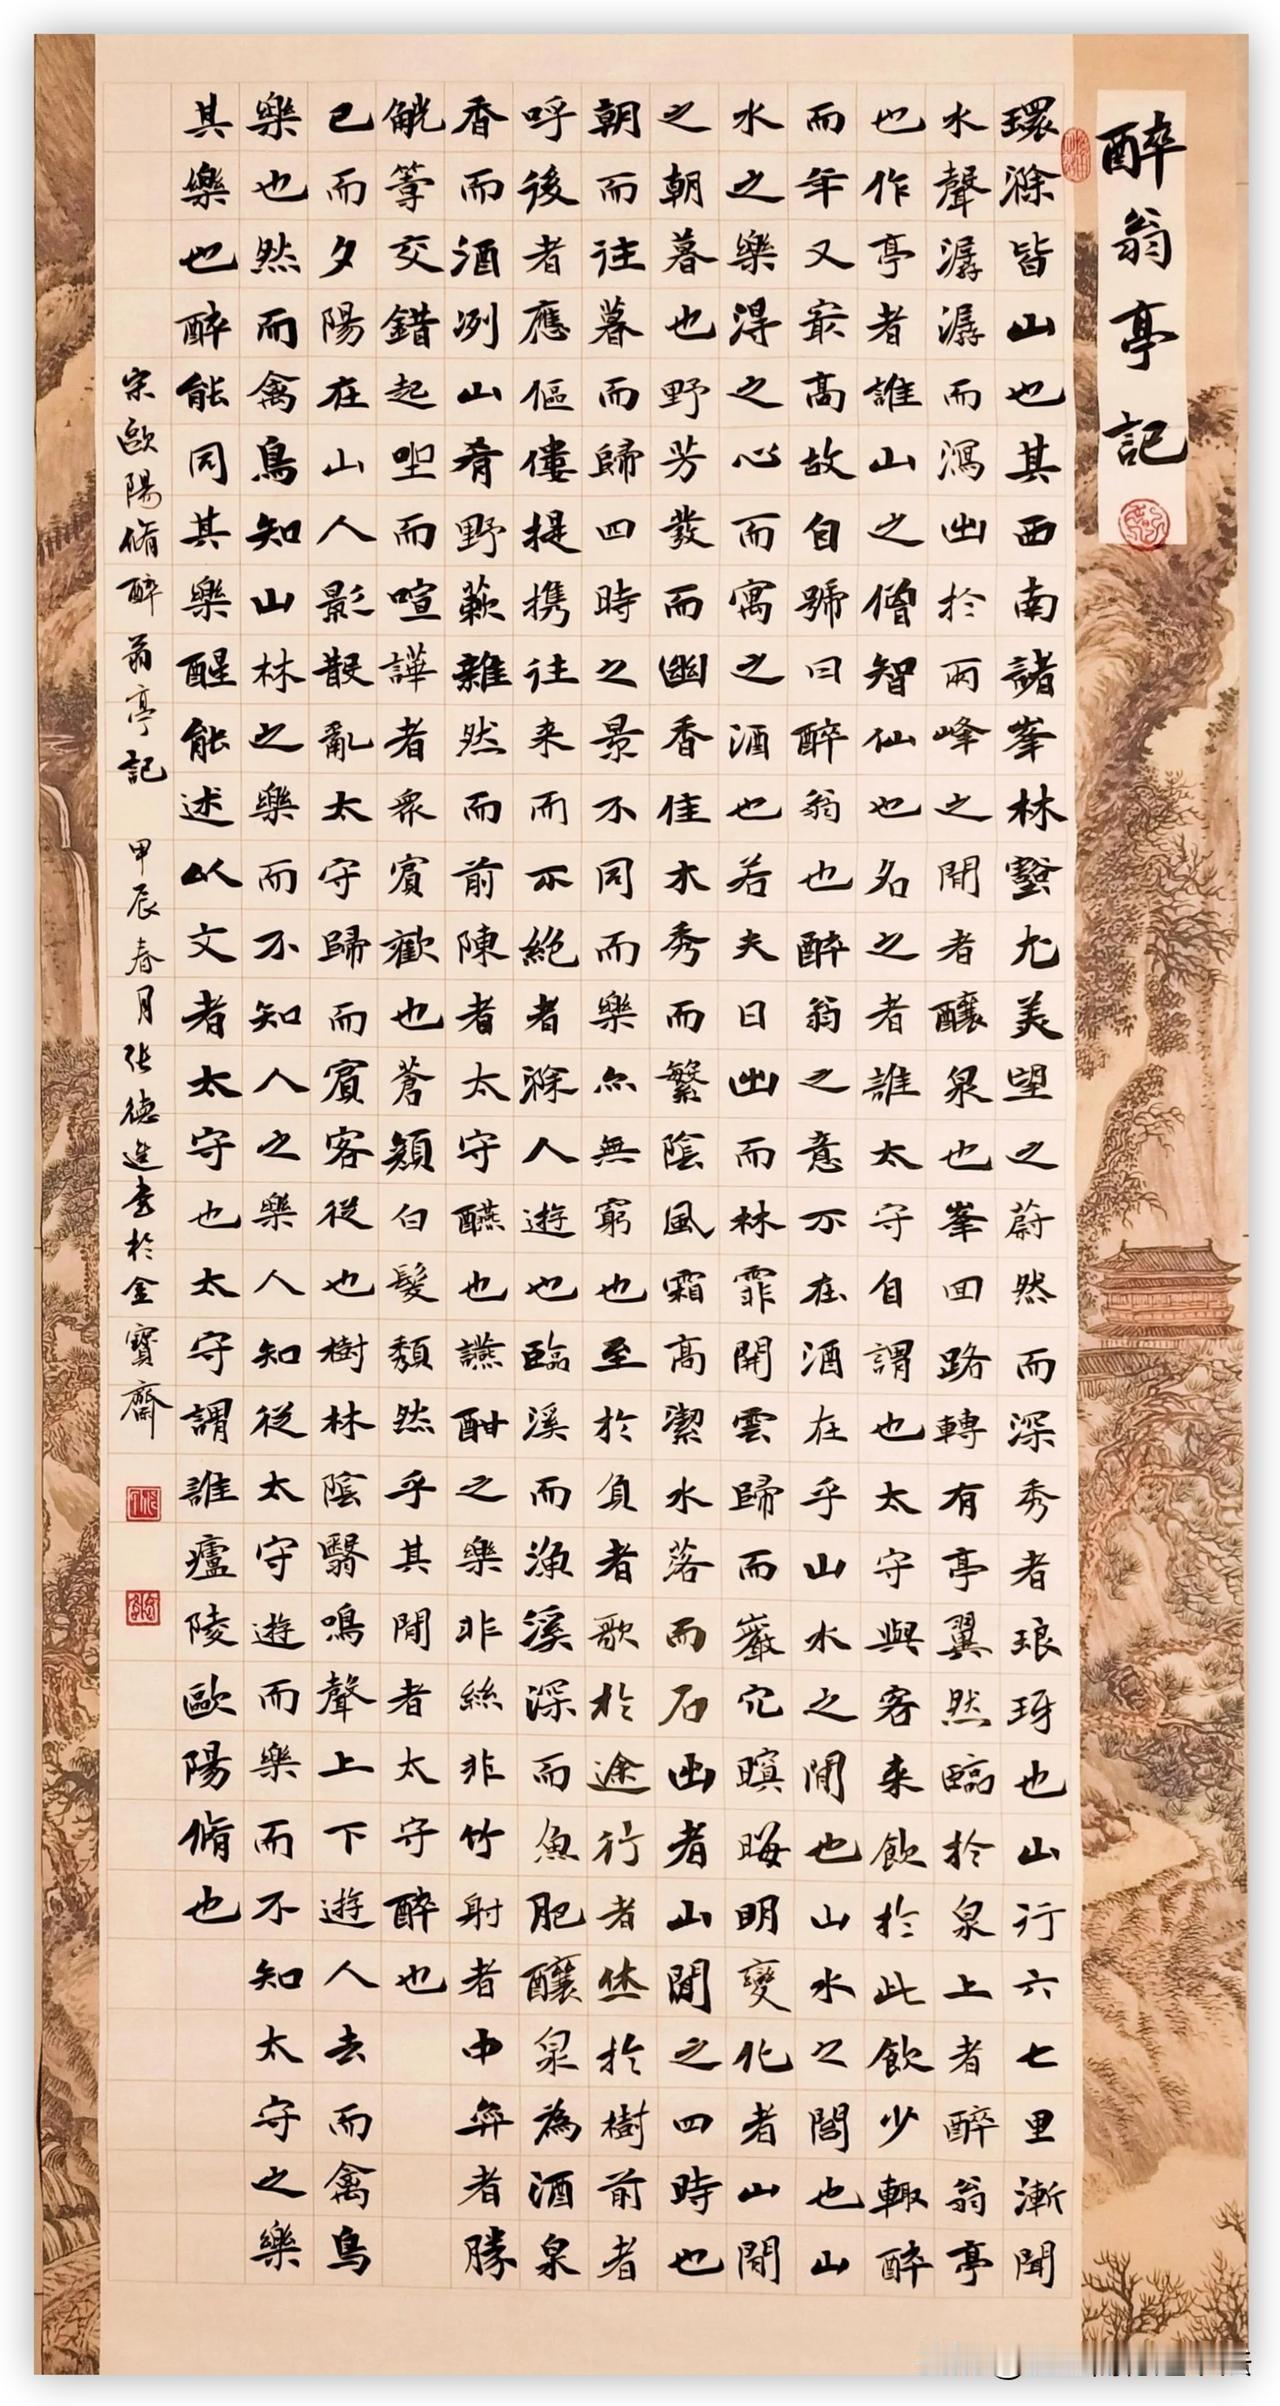 醉翁亭記
環滁皆山也其西南諸峯林壑尤美望之蔚然而深秀者琅玡也山行六七里漸聞
水聲潺潺而瀉出於兩峰之間者釀泉也峯回路轉有亭翼然臨於泉上者醉翁亭
也作亭者誰山之僧智仙也名之者誰太守自謂也太守與客来飲於此飲少輒醉
而年又最高故自號曰醉翁也醉翁之意不在酒在乎山水之間也山水之間也山
水之樂得之心而寓之酒也若夫日出而林霏開雲歸而巖穴暝晦明變化者山間
之朝暮也野芳發而幽香佳木秀而繁陰風霜高潔水落而石出者山間之四時也
朝而往暮而歸四時之景不同而樂亦無窮也至於負者歌於途行者休於樹前者
呼後者應傴僂提携往来而不絕者滁人遊也臨溪而漁溪深而魚肥釀泉為酒泉
香而酒冽山肴野蔌雜然而前陳者太守醼也讌酣之樂非絲非竹射者中弈者勝
觥等交錯起坐而喧譁者衆賓歡也蒼顏白髮頹然乎其間者太守醉也
已而夕陽在山人影散亂太守歸而賓客從也樹林陰翳鳴聲上下遊人去而禽鳥
樂也然而禽鳥知山林之樂而不知人之樂人知從太守遊而樂而不知太守之樂
其樂也醉能同其樂醒能述以文者太守也太守謂誰廬陵歐陽脩也
宋歐陽脩醉翁亭記 甲辰春月张德進书於金寶齋